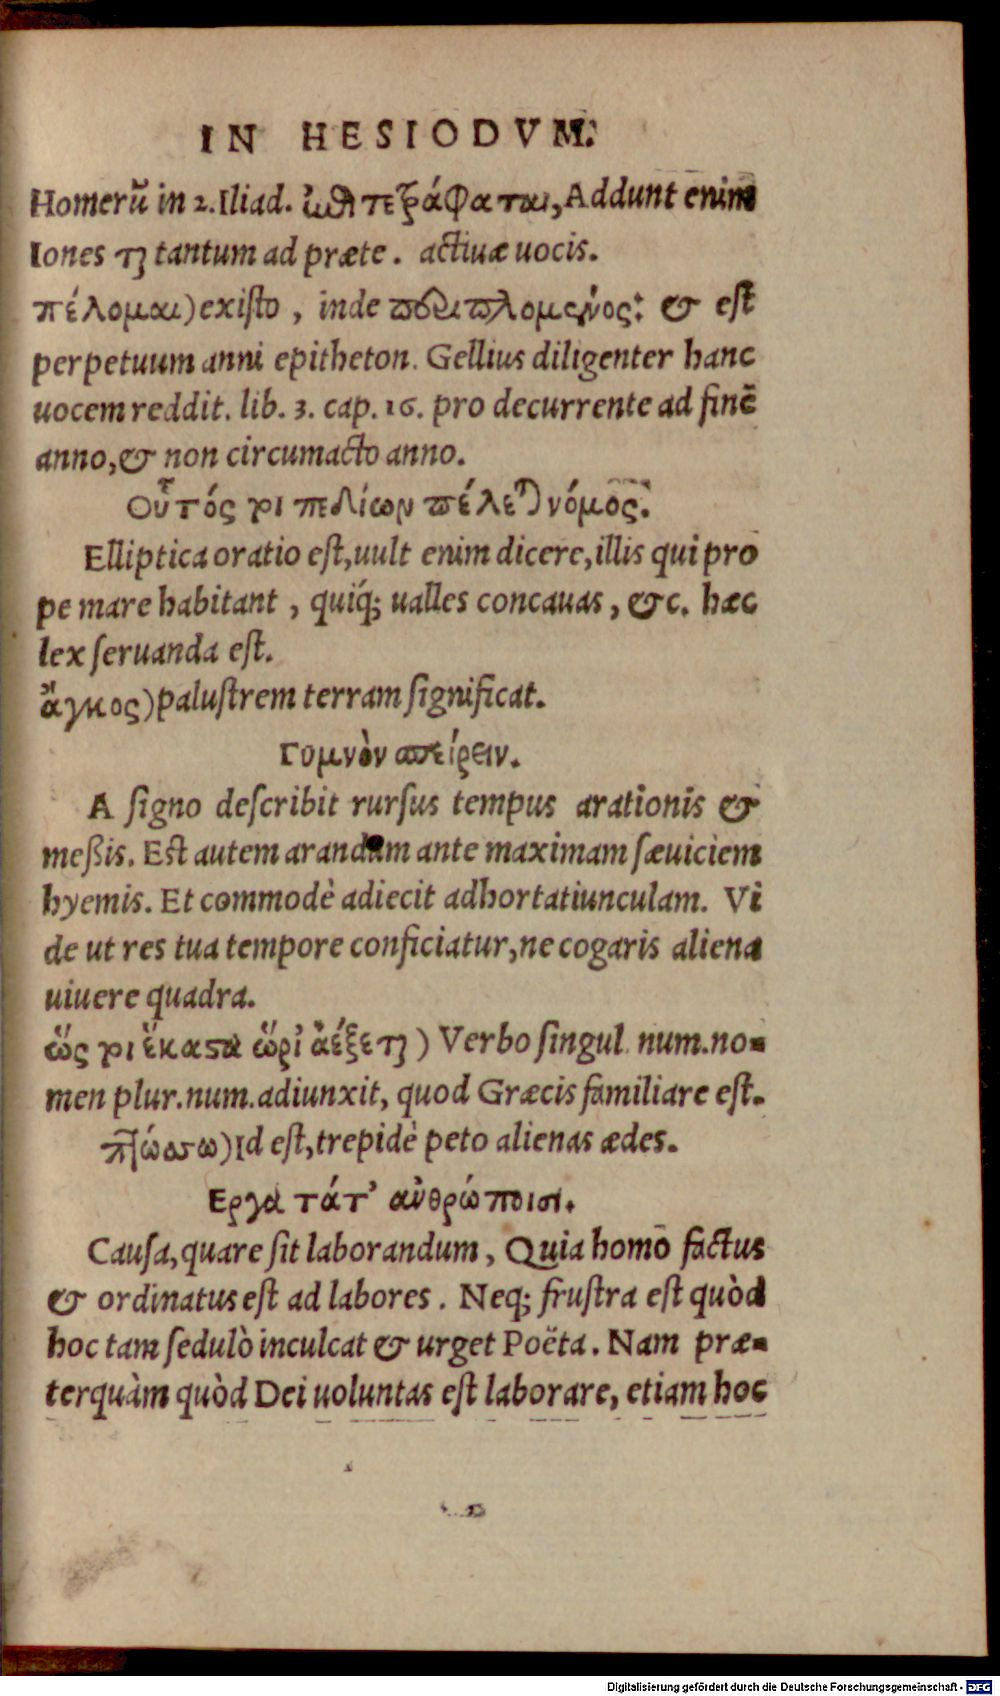 IN HESIODVM.
Homerū in 2. Iliad. ἐπιτετράφαται, Addunt enim
Iones ται tantum ad præte. actiuæ uocis.
πέλομαι) existo, inde περιπλομένος: & est
perpetuum anni epitheton. Gellius diligenter hanc
uocem reddit. lib. 3. cap. 16. pro decurrente ad finē
anno, & non circumacto anno.
Οὗτός τοι πεδίων πέλεται νόμος.
Elliptica oratio est, uult enim dicere, illis qui pro
pe mare habitant, quiq́; ualles concauas, &c. hæc
lex seruanda est.
ἄγκος) palustrem terram significat.
Γυμνὸν σπείρειν.
A signo describit rursus tempus arationis &
meßis. Est autem arandum ante maximam sæuiciem
hyemis. Et commodè adiecit adhortatiunculam. Vi
de ut res tua tempore conficiatur, ne cogaris aliena
uiuere quadra.
ὥς τοι ἕκαστα ὥρι' ἀέξεται) Verbo singul. num. no-
men plur. num. adiunxit, quod Græcis familiare est.
πτώσσω) Id est, trepidè peto alienas ædes.
Εργα τάτ' ἀνθρώποισι.
Causa, quare sit laborandum, Quia homo factus
& ordinatus est ad labores. Neq; frustra est quòd
hoc tam sedulò inculcat & urget Poëta. Nam præ-
terquàm quòd Dei uoluntas est laborare, etiam hoc
Digitalisierung gefördert durch die Deutsche Forschungsgemeinschaft - DFG